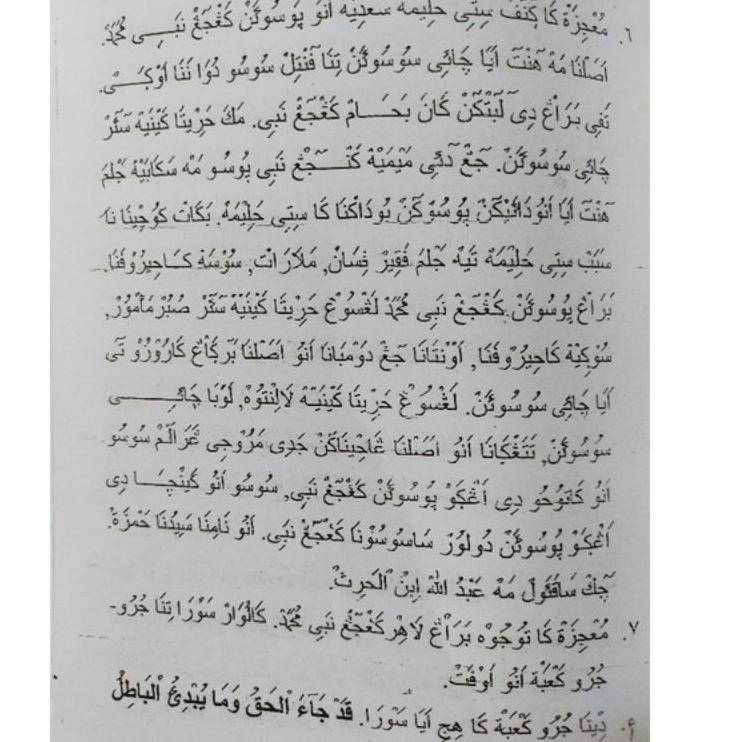 ٦. مُعْجِزَةْ كَا كَنَفْ سِتِي حَلِيْمَهْ سَعْدِيَهْ اَنُوْ ڽُوْسُوْئَنْ كَڠْجٚڠْ نَبِـــي مُحَمَّدْ.
اَصَلْنَا مَهْ هَنْتْ اَيَا چَائِى سُوْسُوْئَنْ تِنَا ڤَنْتِلْ سُوْسُوْ دُوَا نَنَا اَوْكَـى.
تَڤِى بَرَاڠْ دِى لَبٚتْكٚنْ كَانَ بَحَـــامْ كَڠْجٚڠْ نَبِى. مَكَ حَرِيْتَا كَيْنِيَهْ سَئَرْ
چَائِى سُوْسُوْئَنْ. جٚڠْ دٚئِى مَيْمِيَهْ كَڠْـــجٚڠْ نَبِى ڽُوْسُوْ مَهْ سَكَابَيْهْ جَلْمَ
هَنْتْ اَيَا اَنُوْ دَائَيْكٚنْ ڽُوْسُوْكٚنْ بُوْدَاكْنَا كَا سِتِى حَلِيْمَهْ. بَكَاتْ كُوْچِيْنَا نَا
سَبَبْ سِتِى حَلِيْمَهْ تَيْهْ جَلْمَ فَقِيْرْ ڤِسَانْ, مَلَارَاتْ, سُوْسَهْ كَـاحِيْرُوْڤْنَا.
بَرَاڠْ ڽُوْسُوْئَنْ كَڠْجٚڠْ نَبِى مُحَمَّدْ لَڠْسُوْڠْ حَرِيْتَا كَيْنِيَهْ سَئَرْ صُبُرْ مَأْمُوْرْ,
سُوْكِيَهْ كَاحِيْرُوْڤْنَا, اَوْنْتَانَا جٚڠْ دَوْمْبَانَا اَنُوْ اَصَلْنَا بَرٚكَاڠْ كَارُوْرُوْ تَى
اَبَا چَائِى سُوْسُوْئَنْ. لَڠْسُوْڠْ حَرِيْتَا كَيْنِيَهْ لَالِنْتُوْهْ, لَوْبَا چَائِـــــى
سُوْسُوْئَنْ, تَتَڠْكَانَا اَنُوْ اَصَلْنَا ڠَاجِيْنَاكٚنْ جَدِى مَرُوْجِى ڠَرَالَمْ سُوْسُوْ
اَنُوْ كَاتُوْحُوْ دِى اَڠْكَوْ ڽُوْسُوْئَنْ كَڠْجٚڠْ نَبِى, سُوْسُوْ اَنُوْ كَيْنْچَـــا دِى
اَڠْكَوْ ڽُوْسُوْئَنْ دُوْلُوْرْ سَاسُوْسُوْنَا كَڠْجٚڠْ نَبِى. اَنُوْ نَامِنَا سَيِّدُنَا حَمْزَةْ.
چٚكْ سَاقَئُوْلْ مَهْ عَبْدُ اللهْ اِبْنُ الْحَرِثْ.
٧. مُعْجِزَةْ كَا تُوْجُوْهْ بَرَاڠْ لَاهِرْ كَڠْجٚڠْ نَبِى مُحَمَّدْ. كَالُوَارْ سَوْرَا تِنَا جُرُوْ-
جُرُوْ كَعْبَةْ اَنُوْ اَوْڤَتْ.
أ. دِيْنَا جُرُوْ كَعْبَةْ كَا هِجِ اَيَا سَوْرَا. قَدْ جَآءَ الْحَقُّ وَمَا يُبْدِئُ الْبَاطِلُ